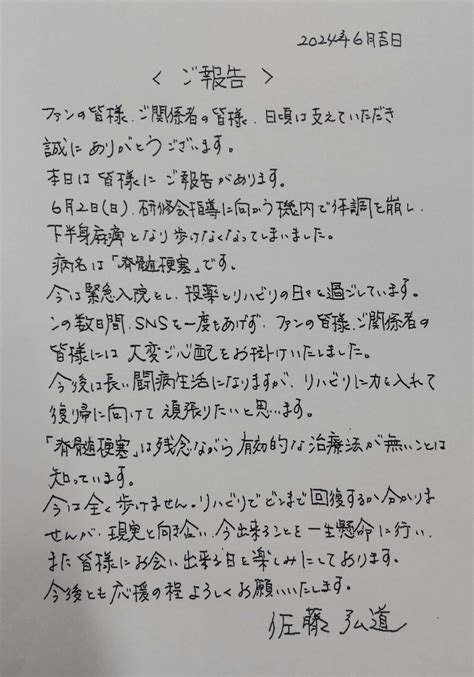 2024年6月吉日
〈 ご報告 〉
ファンの皆様、ご関係者の皆様、日頃は支えていただき
誠にありがとうございます。
本日は皆様にご報告があります。
6月2日(日)、研修会指導に向かう機内で体調を崩し、
下半身麻痺となり歩けなくなってしまいました。
病名は「脊髄梗塞」です。
今は緊急入院をし、投薬とリハビリの日々を過ごしています。
この数日間、SNSを一度もあげず、ファンの皆様、ご関係者の
皆様には大変ご心配をお掛けいたしました。
今後は長い闘病生活になりますが、リハビリに力を入れて
復帰に向けて頑張りたいと思います。
「脊髄梗塞」は残念ながら有効的な治療法が無いことは
知っています。
今は全く歩けません。リハビリでどこまで回復するか分かりま
せんが、現実と向き合い、今出来ることを一生懸命に行い、
また皆様にお会い出来る日を楽しみにしております。
今後とも応援の程よろしくお願いいたします。
佐藤弘道